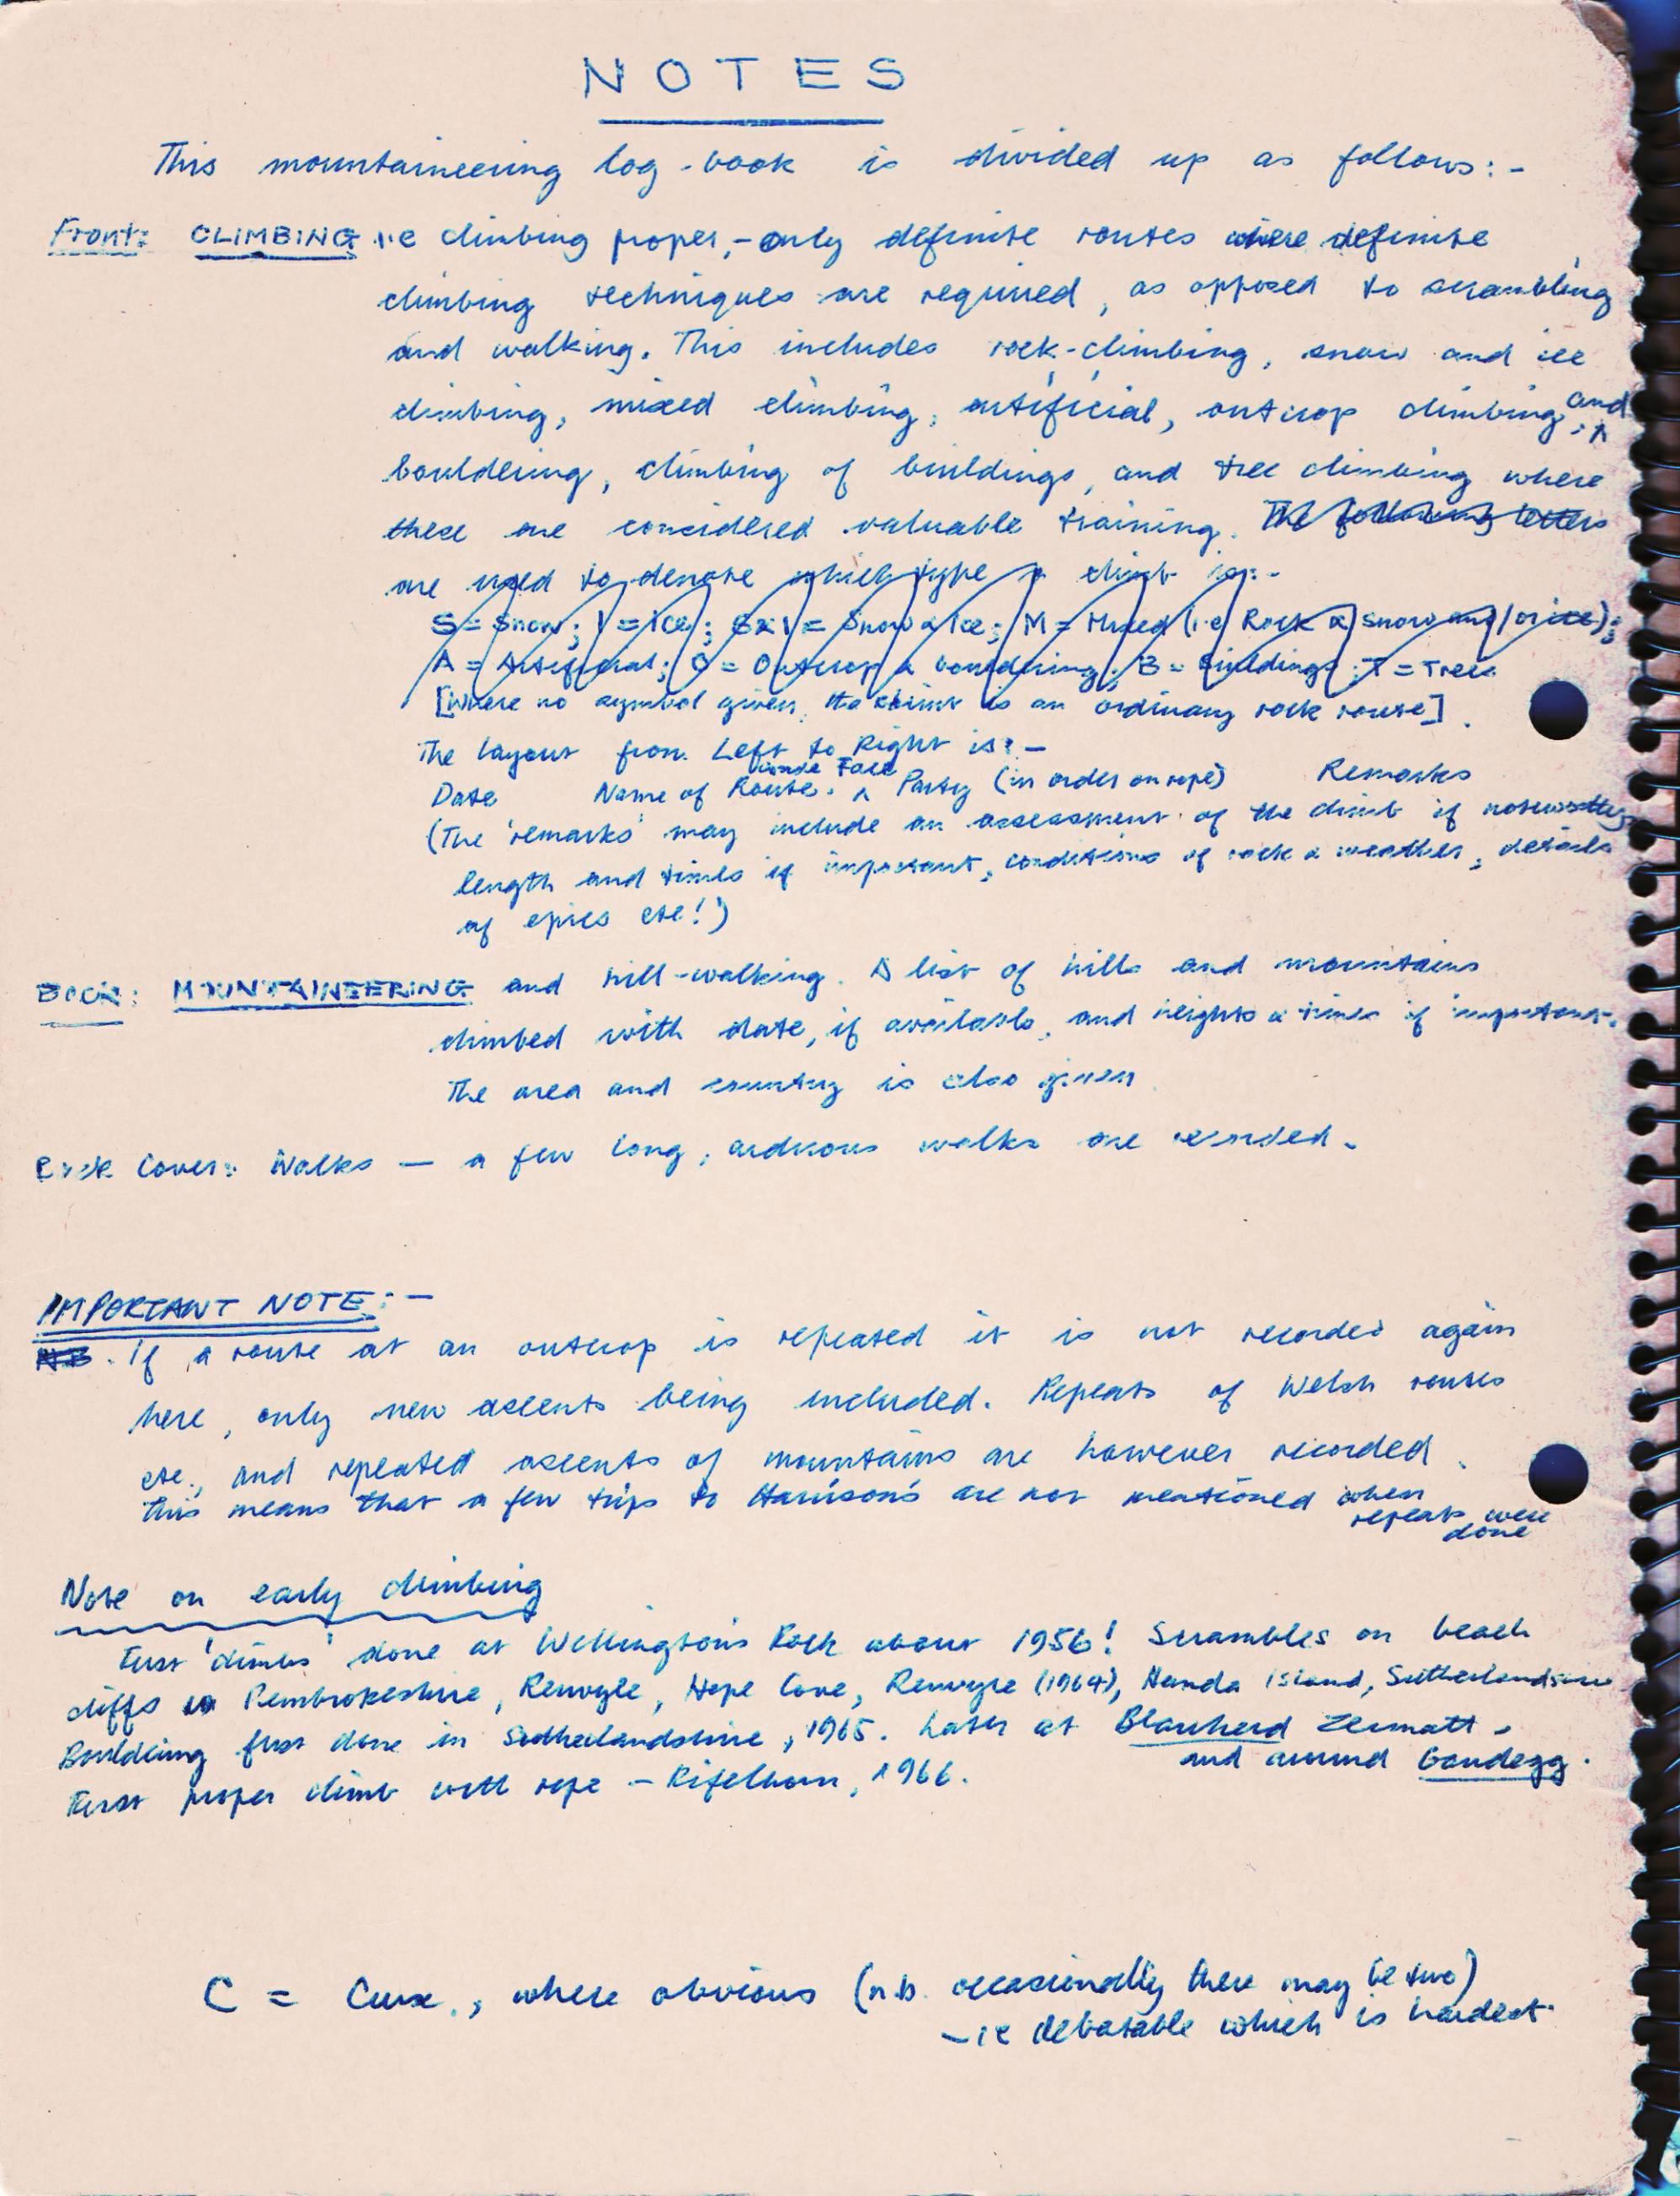 NOTES
This mountaineering log-book is divided up as follows:-
Front: CLIMBING i.e climbing proper, - only definite routes where definite
climbing techniques are required, as opposed to scrambling
and walking. This includes rock-climbing, snow and ice
climbing, mixed climbing, artificial, outcrop climbing and
bouldering, climbing of buildings, and tree climbing where
these are considered valuable training. The following letters
are used to denote which type a climb is:-
S = Snow; I = Ice; S&I = Snow & Ice; M = Mixed (i.e Rock & Snow and/or ice);
A = Artificial; O = Outcrop & bouldering; B = Buildings; T = Tree.
[Where no symbol given, the climb is an ordinary rock route].
The layout from Left to Right is:-
Date Name of Route. Face Party (in order on rope) Remarks
(The 'remarks' may include an assessment of the climb if noteworthy,
length and times if important, conditions of rock & weather, details
of epics etc!)
BACK: MOUNTAINEERING and hill-walking. A list of hills and mountains
climbed with date, if available, and heights & times if important.
The area and country is also given.
Back Cover: Walks — a few long, arduous walks are recorded.
IMPORTANT NOTE:-
NB. If a route at an outcrop is repeated it is not recorded again
here, only new ascents being included. Repeats of Welsh routes
etc., and repeated ascents of mountains are however recorded.
this means that a few trips to Harrison's are not mentioned when
repeats were
done
Note on early climbing
First 'climbs' done at Wellington's Rock about 1956! Scrambles on beach
cliffs in Pembrokeshire, Renvyle, Hope Cove, Renvyle (1964), Handa Island, Sutherlandshire
Bouldering first done in Sutherlandshire, 1965. Later at Blauherd Zermatt,
and around Gandegg.
First proper climb with rope - Rifelhorn, 1966.
C = Crux., where obvious (n.b. occasionally there may be two)
- ie debatable which is hardest.